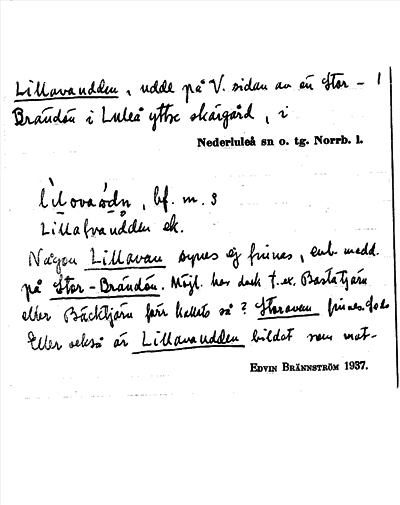 Lillavaudden, udde på V. sidan av ön Stor- 1
Brändön i Luleå yttre skärgård, i
Nederluleå sn o. tg. Norrb. l.
bf. m. s
Lillafvaudden ek.
Någon Lillavan synes ej finnas, enl. medd.
på Stor-Brändön. Möjl. har dock t.ex. Bastatjärn
eller Bäcktjärn förr kallats så? Storavan finnes.
Eller också är Lillavaudden bildat som mot-
EDVIN BRÄNNSTRÖM 1937.